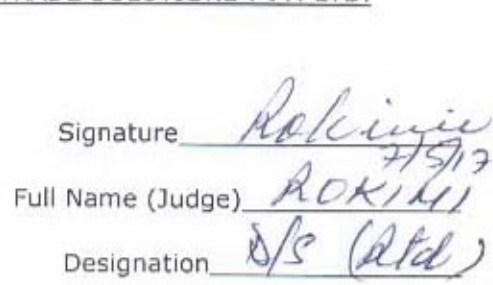 Signature Rokimi
7/5/17
Full Name (Judge) ROKIMI
Designation D/S (Rtd)